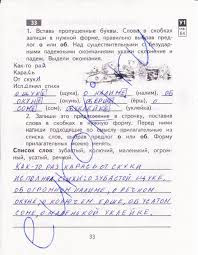 33
У1
1. Вставь пропущенные буквы. Слова в скобках
запиши в нужной форме, правильно выбрав пред-
лог о или об. Над существительными с безудар-
ными падежными окончаниями укажи склонение и
падеж. Выдели окончания.
Как-то раз
Карась
От скуки
Исполнял стихи
о щуке о налиме об
окуне о ерше об
соме о уклейке
2. Запиши это предложение в строчку, поставив
слова в скобках в нужную форму. Перед ними
напиши подходящие по смыслу прилагательные из
списка слов, выбрав предлог о или об. Форму
прилагательных можно менять.
Список слов: зубастый, колючий, маленький, огром-
ный, усатый, речной.
Как-то раз карась от скуки
исполнял стихи о зубастой щуке,
об огромном налиме, о речном
окуне, о колючем ерше, об усатом
соме, о маленькой уклейке.
33